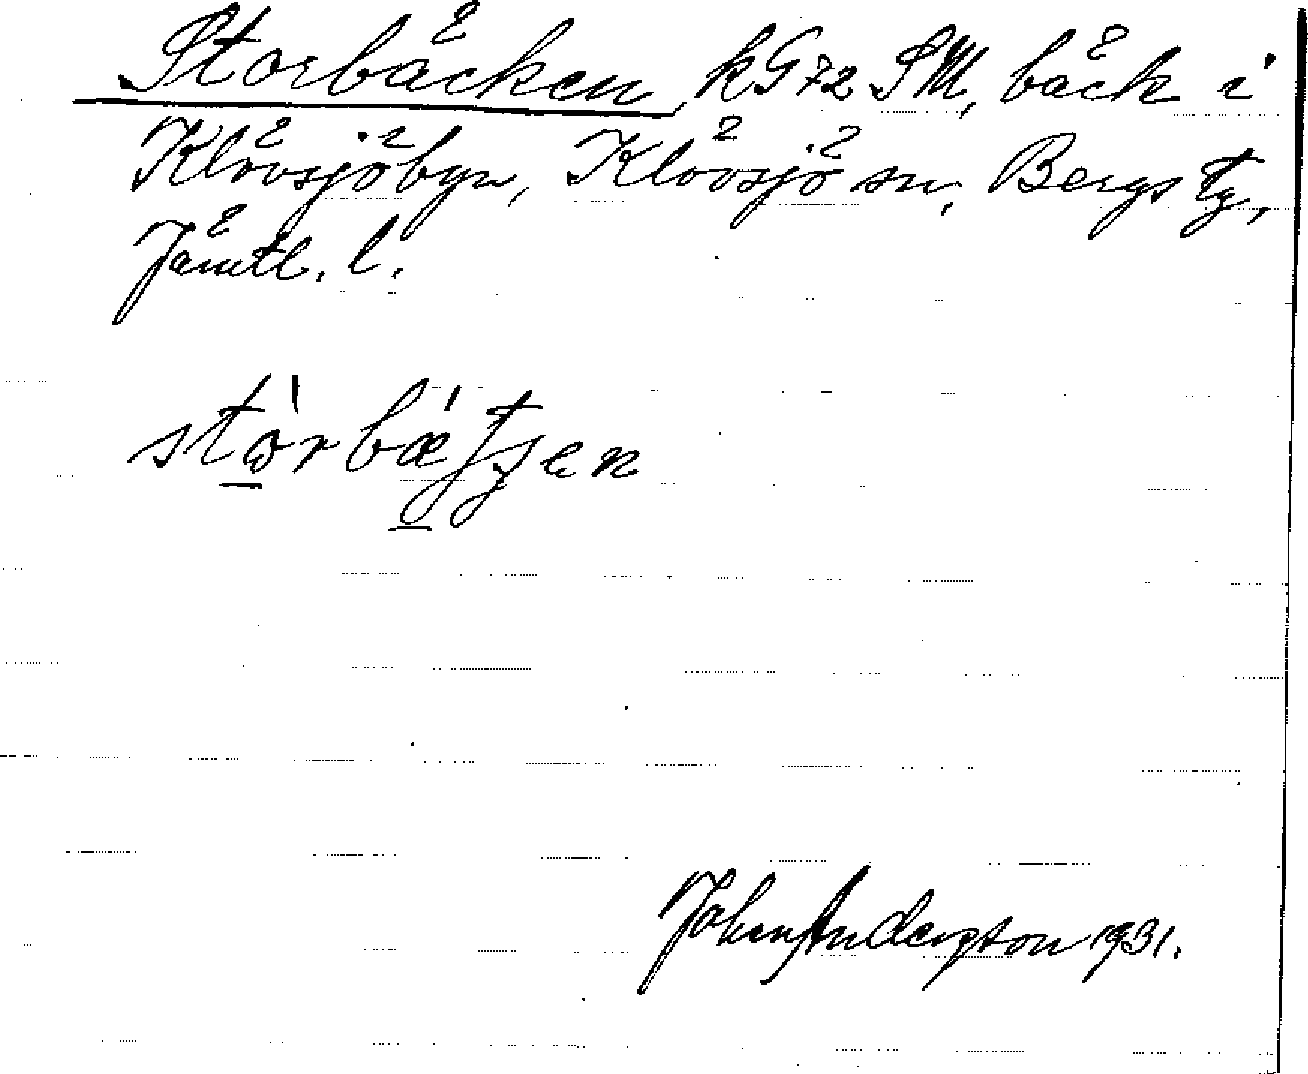 Storbäcken, kG72 SM, bäck i
Klövsjöbyn, Klövsjö sn, Bergs tg,
Jämtl. l.
stὼrbæ̀ʃʒen
John Anderzton 1931.